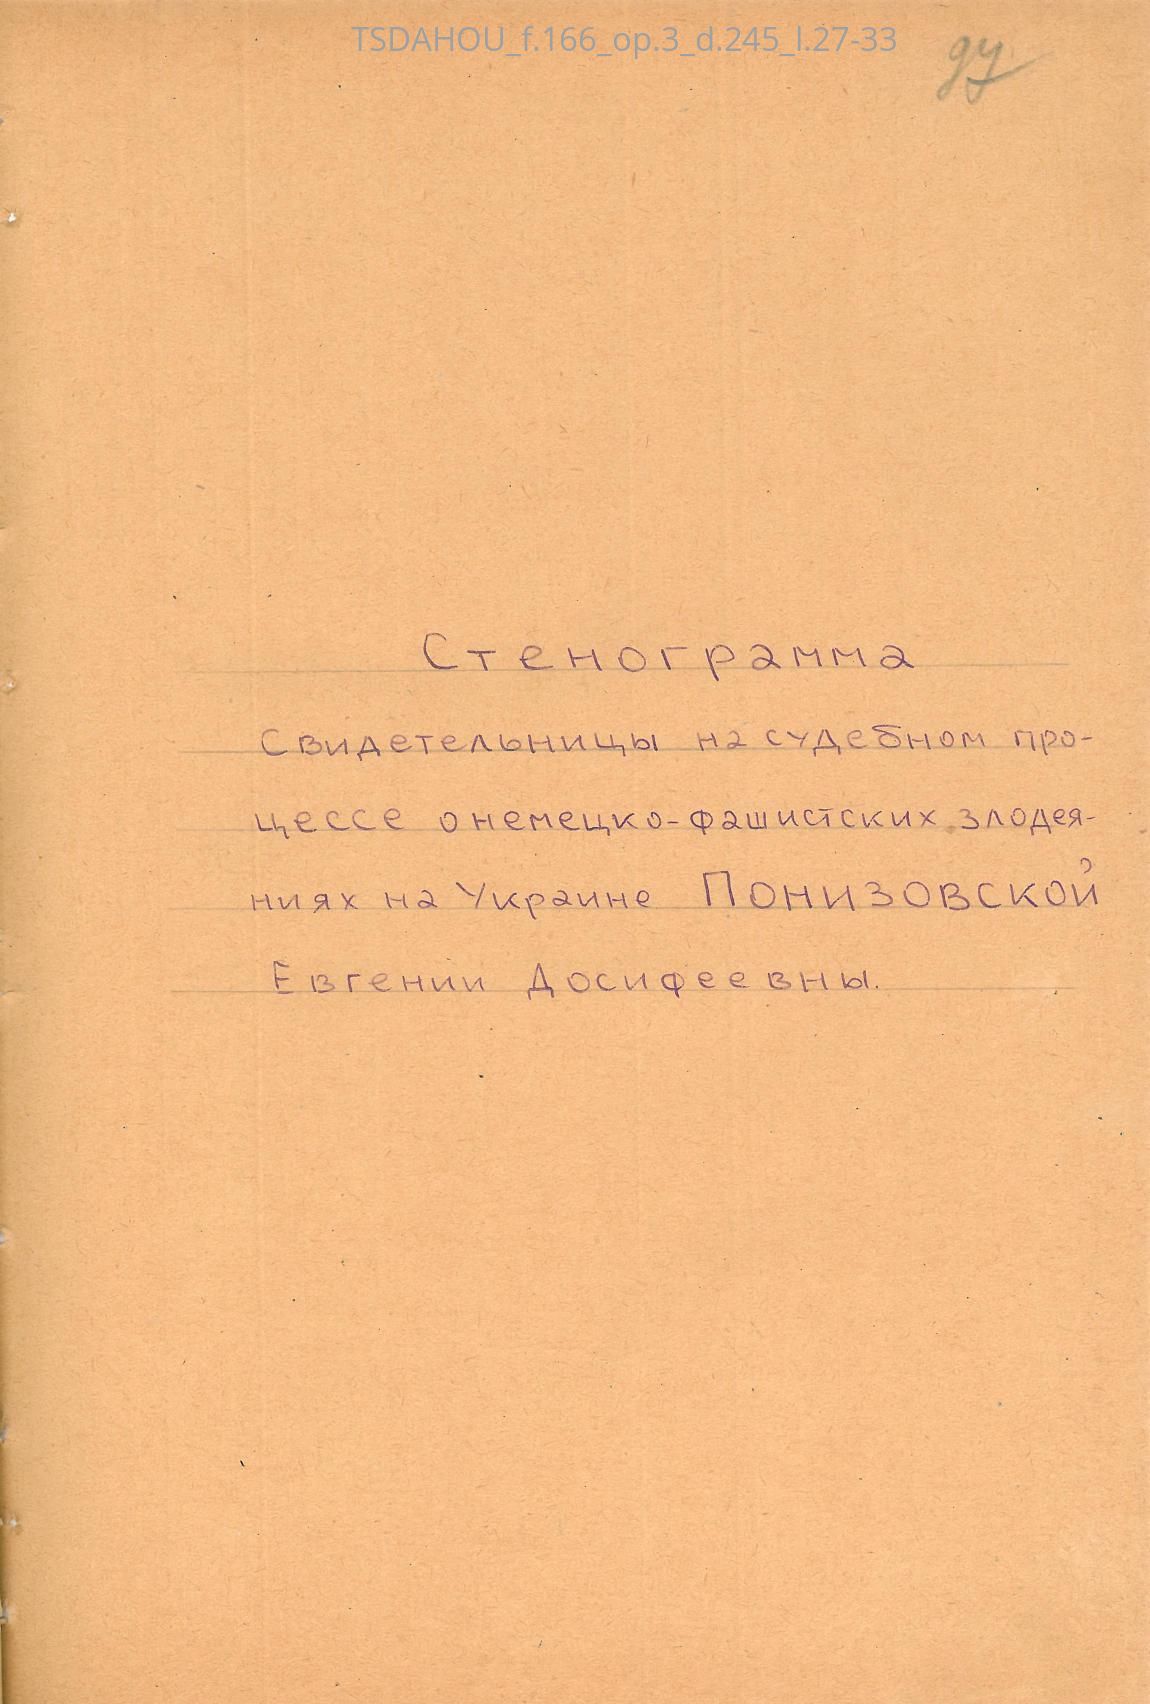 TSDAHOU_f.166_op.3_d.245_l.27-33
Стенограмма
Свидетельницы на судебном про-
цессе о немецко-фашистских злодея-
ниях на Украине Понизовской
Евгении Досифеевны.